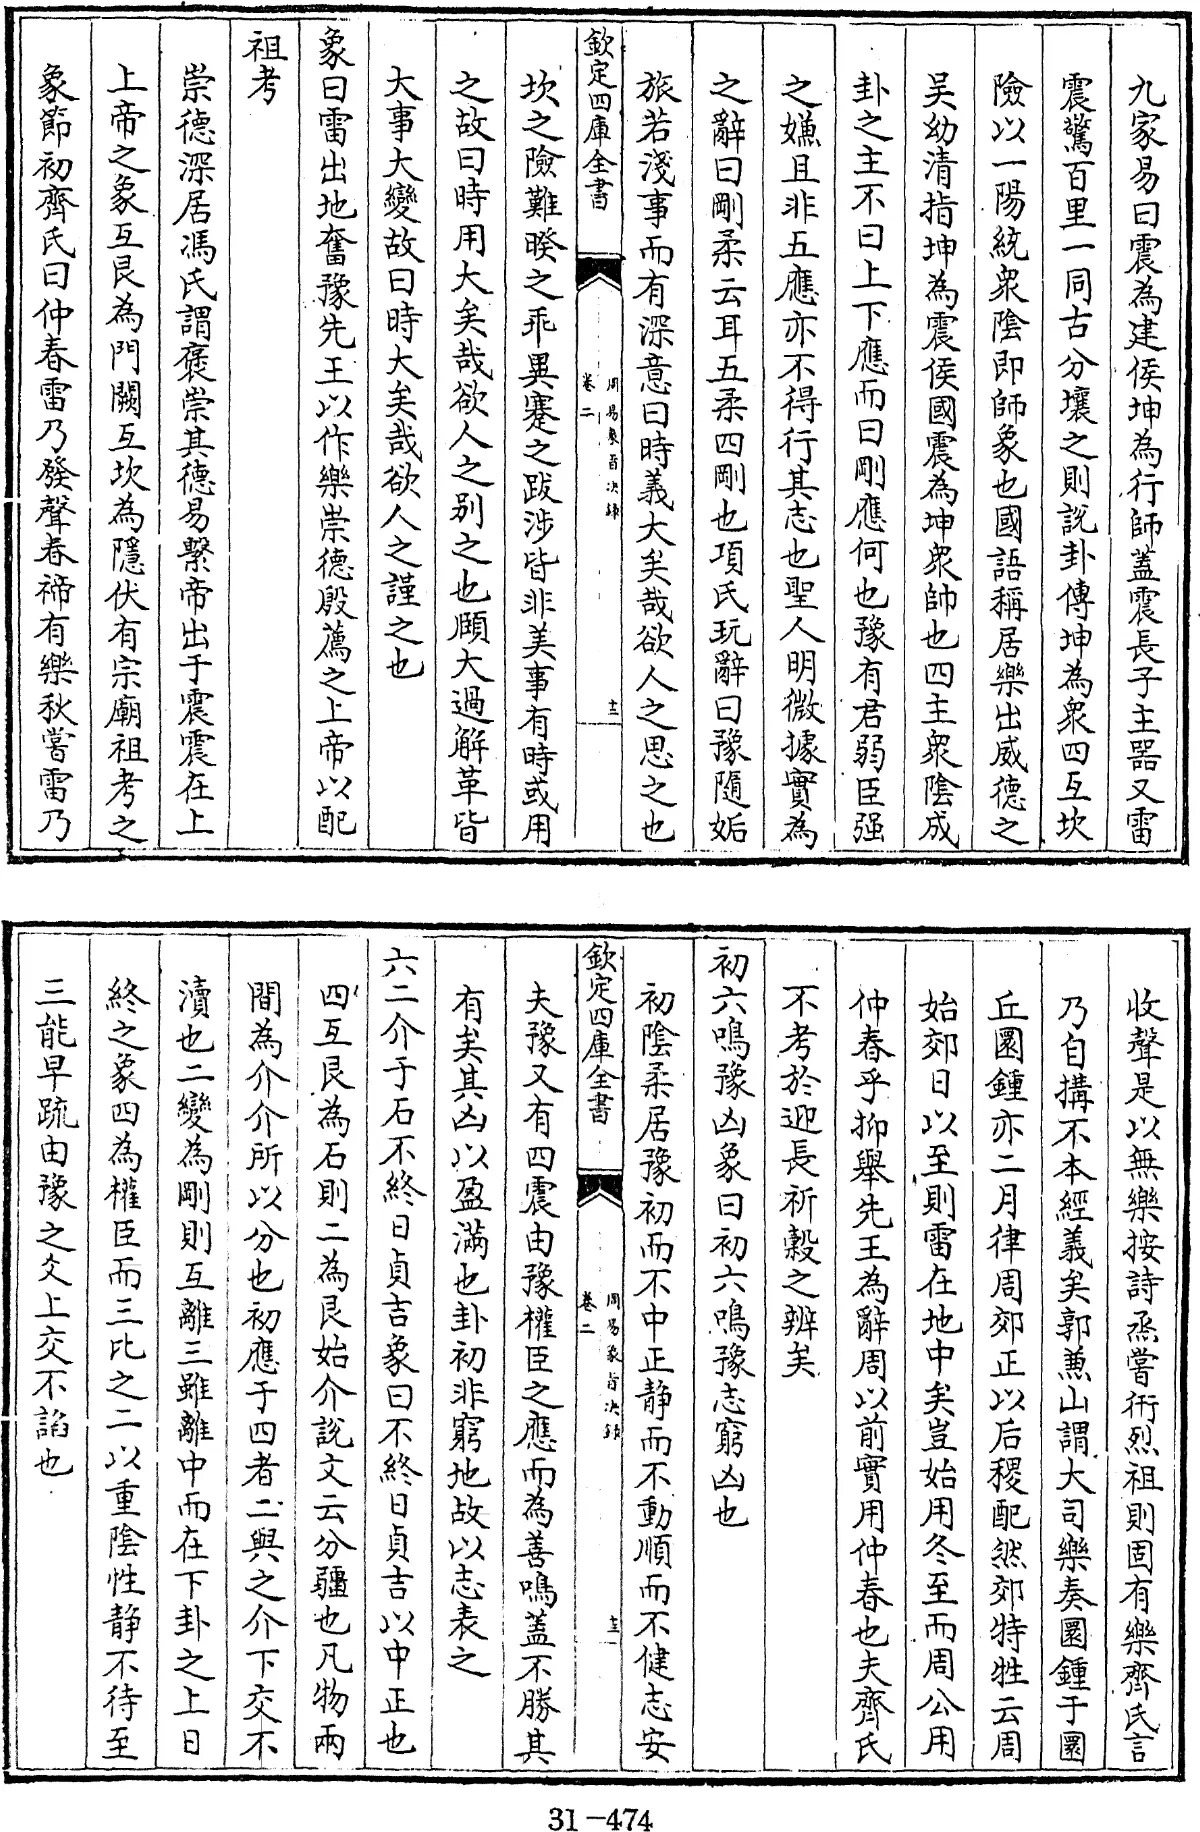 九家易曰震為建侯坤為行師蓋震長子主器又雷
震驚百里一同古分壤之則說卦傳坤為衆四互坎
險以一陽統衆陰即師象也國語稱居樂出威德之
吴幼清指坤為震侯國震為坤衆帥也四主衆陰成
卦之主不曰上下應而曰剛應何也豫有君弱臣强
之嫌且非五應亦不得行其志也聖人明微據實為
之辭曰剛柔云耳五柔四剛也項氏玩辭曰豫隨姤
旅若淺事而有深意曰時義大矣哉欲人之思之也
欽定四庫全書
周易象旨決録
卷二
十二
坎之險難暌之乖異蹇之跋涉皆非美事有時或用
之故曰時用大矣哉欲人之别之也頤大過解革皆
大事大變故曰時大矣哉欲人之謹之也
象曰雷出地奮豫先王以作樂崇德殷薦之上帝以配
祖考
崇德深居馮氏謂褒崇其德易繫帝出于震震在上
上帝之象互艮為門闕互坎為隱伏有宗廟祖考之
象節初齊氏曰仲春雷乃發聲春禘有樂秋嘗雷乃
收聲是以無樂按詩烝嘗衎烈祖則固有樂齊氏言
乃自搆不本經義矣郭兼山謂大司樂奏圜鍾于圜
丘圜鍾亦二月律周郊正以后稷配然郊特牲云周
始郊日以至則雷在地中矣豈始用冬至而周公用
仲春乎抑舉先王為辭周以前實用仲春也夫齊氏
不考於迎長祈穀之辨矣
初六鳴豫凶象曰初六鳴豫志窮凶也
初陰柔居豫初而不中正静而不動順而不健志安
欽定四庫全書
周易象旨決録
卷二
十三
夫豫又有四震由豫權臣之應而為善鳴蓋不勝其
有矣其凶以盈滿也卦初非窮地故以志表之
六二介于石不終日貞吉象曰不終日貞吉以中正也
四互艮為石則二為艮始介說文云分疆也凡物兩
間為介介所以分也初應于四者二與之介下交不
瀆也二變為剛則互離三雖離中而在下卦之上日
終之象四為權臣而三比之二以重陰性静不待至
三能早疏由豫之爻上交不諂也
31-474